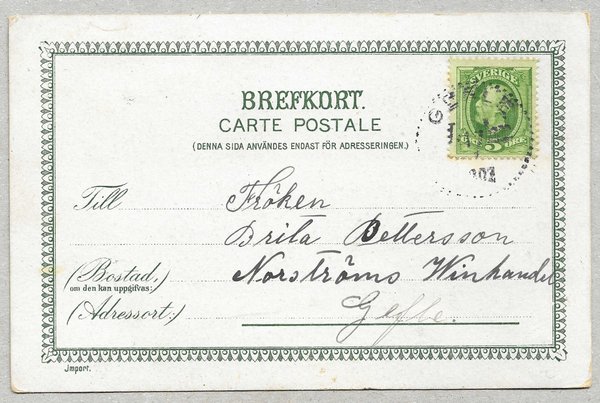 SVERIGE
5 ÖRE
BREFKORT.
CARTE POSTALE
(DENNA SIDA ANVÄNDES ENDAST FÖR ADRESSERINGEN.)
Till Fröken
Brita Pettersson
(Bostad,) Norströms Winhandel
om den kan uppgifvas:
(Adressort:) Gefle.
Import.